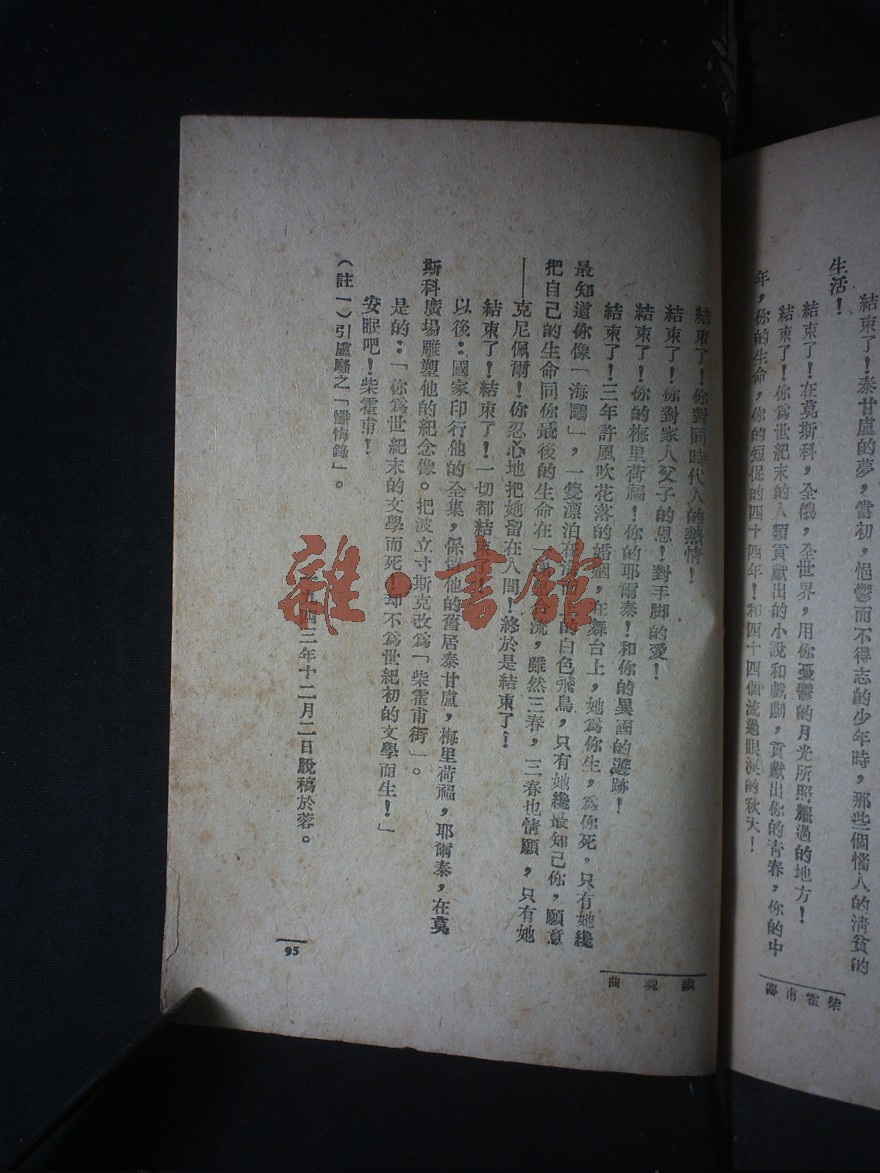 結束了！泰甘盧的夢，當初，悒鬱而不得志的少年時，那些個惱人的淸貧的
生活！
結束了！在莫斯科，全俄，全世界，用你憂鬱的月光所照耀過的地方！
結束了！你爲世紀末的人類貢獻出的小說和戲劇，貢獻出你的靑春，你的中
年，你的生命，你的短促的四十四年！和四十四個流過眼淚的秋天！
柴霍甫
結束了！你對同時代人的熱情！
結束了！你對家人父子的恩！對手脚的愛！
結束了！你的梅里荷福！你的耶爾泰！和你的異國的遊跡！
結束了！三年許風吹花落的婚姻，在舞台上，她爲你生，爲你死，只有她纔
最知道你像「海鷗」，一隻漂泊在的白色飛鳥，只有她纔最知己你，願意
把自己的生命同你最後的生命在一流，雖然三春，三春也情願，只有她
——克尼佩爾！你忍心地把她留在人間！終於是結束了！
結束了！結束了！一切都結束了！
以後：國家印行他的全集，保留他的舊居泰甘盧，梅里荷福，耶爾泰，在莫
斯科廣場雕塑他的紀念像。把波立寸斯克改爲「柴霍甫街」。
是的：「你爲世紀末的文學而死！却不爲世紀初的文學而生！」
安眠吧！柴霍甫！
（註一）引盧騷之「懺悔錄」。
九四三年十二月二日脫稿於蓉。
曲
95
雜·書館